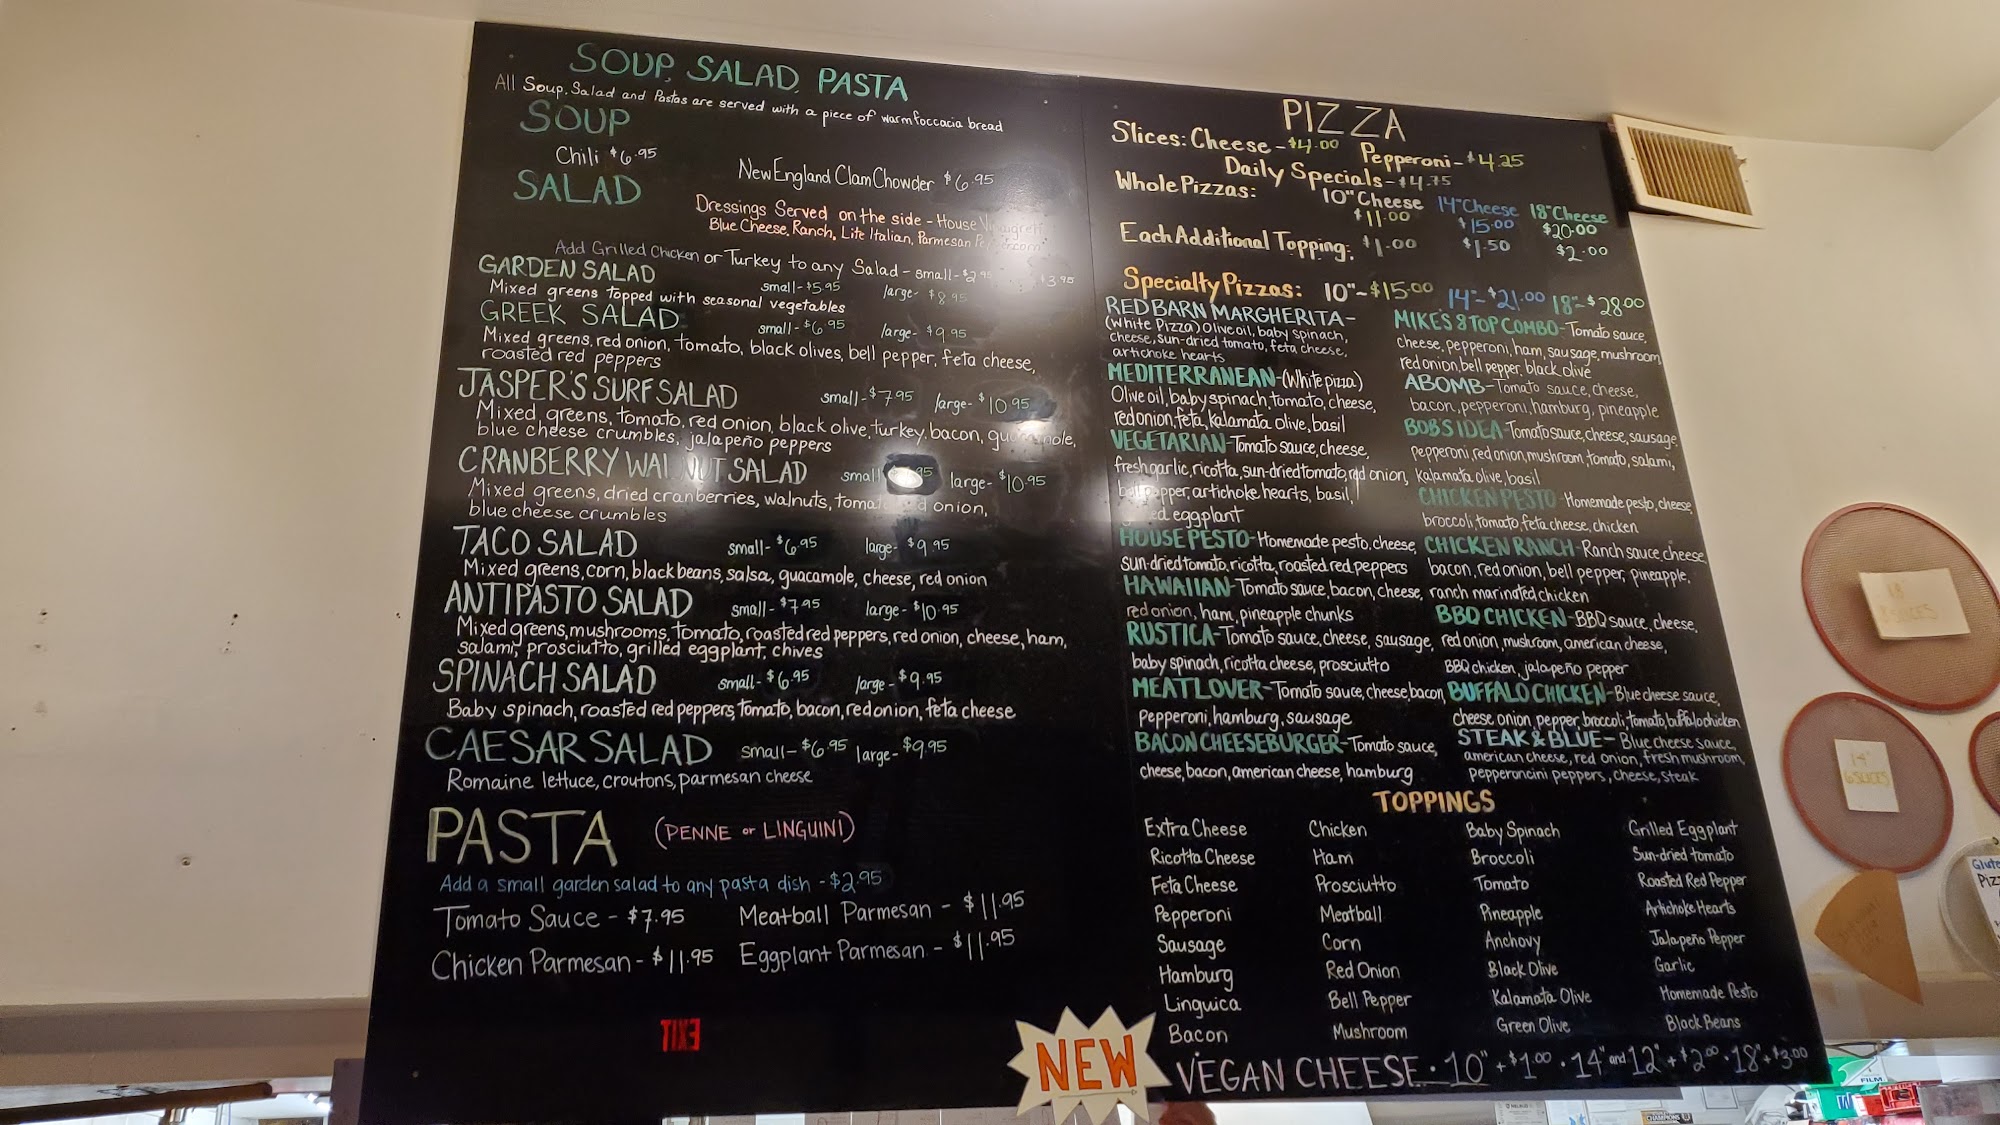 SOUP, SALAD, PASTA
All Soup, Salad and Pastas are served with a piece of warm foccacia bread
SOUP
Chili $6.95
New England Clam Chowder $6.95
SALAD
Dressings Served on the side - House
Blue Cheese, Ranch, Lite Italian, Parmesan
Add Grilled Chicken or Turkey to any Salad - small - $2.95 $3.95
GARDEN SALAD small - $5.95 large - $8.95
Mixed greens topped with seasonal vegetables
GREEK SALAD small - $6.95 large - $9.95
Mixed greens, red onion, tomato, black olives, bell pepper, feta cheese,
roasted red peppers
JASPER'S SURF SALAD small - $7.95 large - $10.95
Mixed greens, tomato, red onion, black olive, turkey, bacon, guacamole,
blue cheese crumbles, jalapeño peppers
CRANBERRY WALNUT SALAD small large - $10.95
Mixed greens, dried cranberries, walnuts, tomato, red onion,
blue cheese crumbles
TACO SALAD small - $6.95 large - $9.95
Mixed greens, corn, black beans, salsa, guacamole, cheese, red onion
ANTIPASTO SALAD small - $7.95 large - $10.95
Mixed greens, mushrooms, tomato, roasted red peppers, red onion, cheese, ham,
salami, prosciutto, grilled eggplant, chives
SPINACH SALAD small - $6.95 large - $9.95
Baby spinach, roasted red peppers, tomato, bacon, red onion, feta cheese
CAESAR SALAD small - $6.95 large - $9.95
Romaine lettuce, croutons, parmesan cheese
PASTA (PENNE or LINGUINI)
Add a small garden salad to any pasta dish - $2.95
Tomato Sauce - $7.95 Meatball Parmesan - $11.95
Chicken Parmesan - $11.95 Eggplant Parmesan - $11.95
EXIT
PIZZA
Slices: Cheese - $4.00 Pepperoni - $4.25
Daily Specials - $4.75
Whole Pizzas: 10" Cheese 14" Cheese 18" Cheese
$11.00 $15.00 $20.00
Each Additional Topping: $1.00 $1.50 $2.00
Specialty Pizzas: 10" - $15.00 14" - $21.00 18" - $28.00
RED BARN MARGHERITA -
(White Pizza) Olive oil, baby spinach,
cheese, sun-dried tomato, feta cheese,
artichoke hearts
MEDITERRANEAN - (White pizza)
Olive oil, baby spinach, tomato, cheese,
red onion, feta, Kalamata olive, basil
VEGETARIAN - Tomato sauce, cheese,
fresh garlic, ricotta, sun-dried tomato, red onion,
bell pepper, artichoke hearts, basil,
eggplant
HOUSE PESTO - Homemade pesto, cheese,
sun-dried tomato, ricotta, roasted red peppers
HAWAIIAN - Tomato sauce, bacon, cheese,
red onion, ham, pineapple chunks
RUSTICA - Tomato sauce, cheese, sausage,
baby spinach, ricotta cheese, prosciutto
MEAT LOVER - Tomato sauce, cheese, bacon,
Pepperoni, hamburg, sausage
BACON CHEESEBURGER - Tomato sauce,
cheese, bacon, american cheese, hamburg
MIKE'S 8 TOP COMBO - Tomato sauce,
cheese, pepperoni, ham, sausage, mushroom,
red onion, bell pepper, black olive
ABOMB - Tomato sauce, cheese,
bacon, pepperoni, hamburg, pineapple
BOBS IDEA - Tomato sauce, cheese, sausage,
pepperoni, red onion, mushroom, tomato, salami,
Kalamata olive, basil
CHICKEN PESTO - Homemade pesto, cheese,
broccoli, tomato, feta cheese, chicken
CHICKEN RANCH - Ranch sauce cheese,
bacon, red onion, bell pepper, pineapple,
ranch marinated chicken
BBQ CHICKEN - BBQ sauce, cheese,
red onion, mushroom, american cheese,
BBQ chicken, jalapeño pepper
BUFFALO CHICKEN - Blue cheese sauce,
cheese, onion, pepper, broccoli, tomato, buffalo chicken
STEAK & BLUE - Blue cheese sauce,
american cheese, red onion, fresh mushroom,
Pepperoncini peppers, cheese, steak
TOPPINGS
Extra Cheese Chicken Baby Spinach Grilled Eggplant
Ricotta Cheese Ham Broccoli Sun-dried tomato
Feta Cheese Prosciutto Tomato Roasted Red Pepper
Pepperoni Meatball Pineapple Artichoke Hearts
Sausage Corn Anchovy Jalapeño Pepper
Hamburg Red Onion Black Olive Garlic
Linguica Bell Pepper Kalamata Olive Homemade Pesto
Bacon Mushroom Green Olive Black Beans
NEW
VEGAN CHEESE • 10" + $1.00 • 14" and 12" + $2.00 • 18" + $3.00
18"
8 SLICES
14"
6 SLICES
FILM